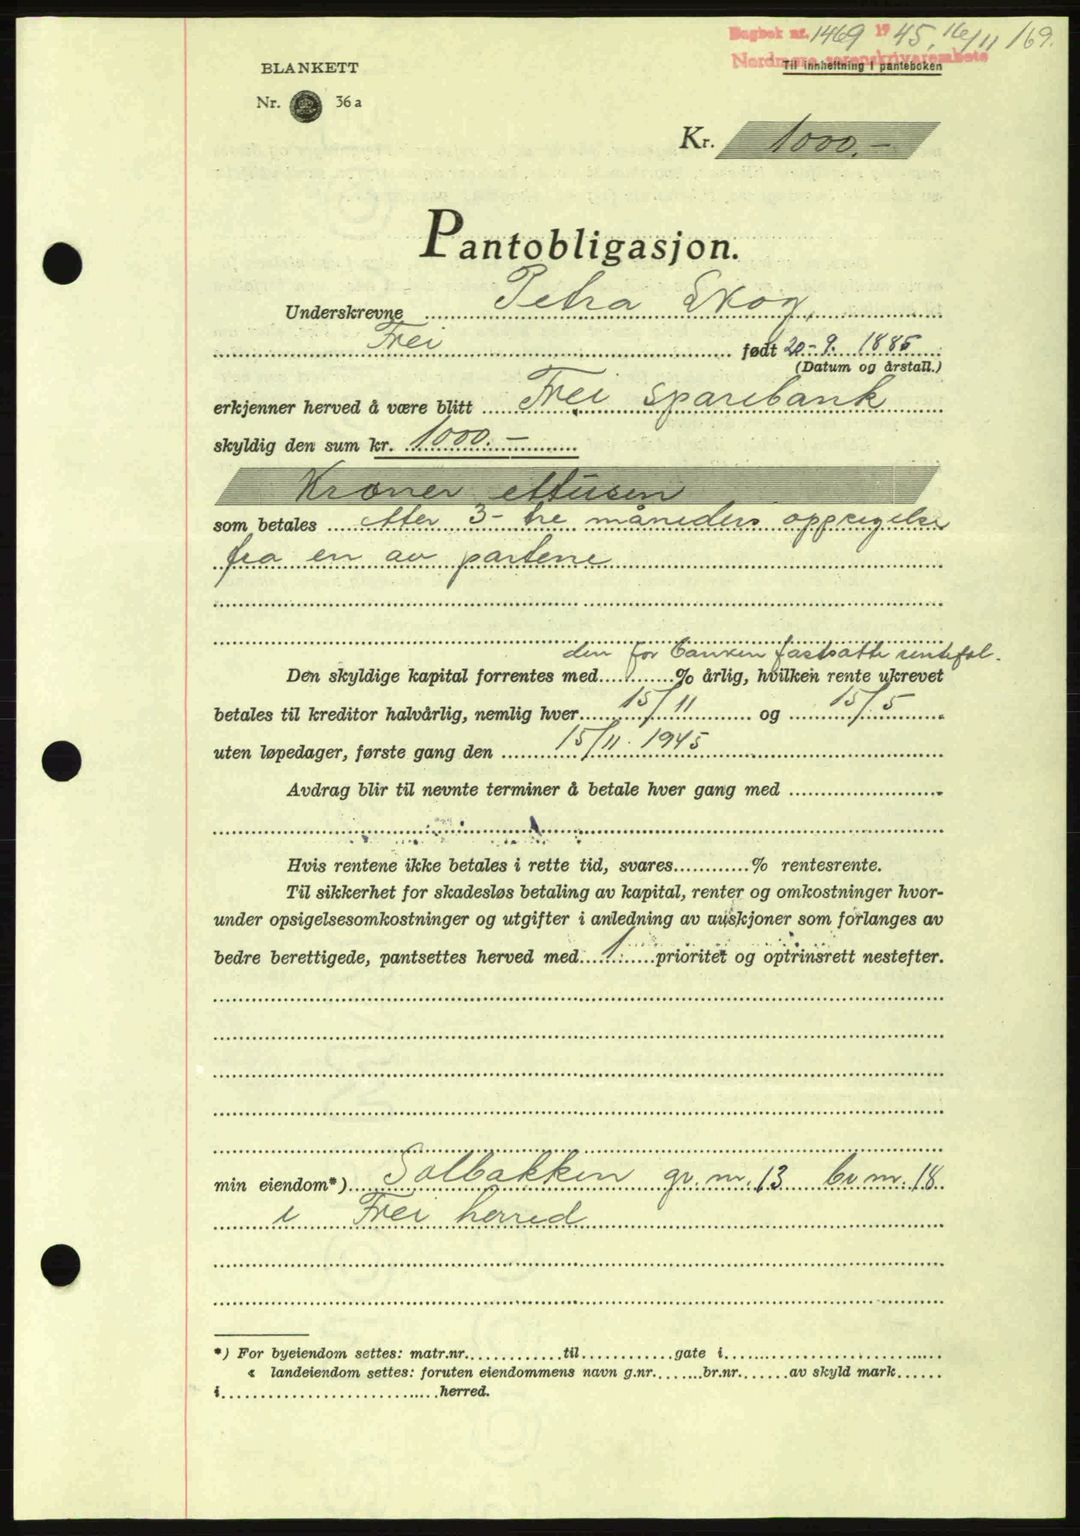 Dagbok nr. 1469 19 45, 16/11 169.
Nordmøre sorenskriverembete
Til innheftning i panteboken
BLANKETT
Nr. 36 a
Kr. 1000.-
Pantobligasjon.
Underskrevne Petra Skog,
Frei født 20-9. 1886
(Datum og årstall.)
erkjenner herved å være blitt Frei sparebank
skyldig den sum kr. 1000.-
Kroner ettusen
som betales etter 3- tre måneders oppsigelse
fra en av partene
den for banken fastsatte rentefot.
Den skyldige kapital forrentes med % årlig, hvilken rente ukrevet
betales til kreditor halvårlig, nemlig hver 15/11 og 15/5
uten løpedager, første gang den 15/11. 1945
Avdrag blir til nevnte terminer å betale hver gang med
Hvis rentene ikke betales i rette tid, svares % rentesrente.
Til sikkerhet for skadesløs betaling av kapital, renter og omkostninger hvor-
under opsigelsesomkostninger og utgifter i anledning av auskjoner som forlanges av
bedre berettigede, pantsettes herved med 1 prioritet og optrinsrett nestefter.
min eiendom*) Solbakken gr. nr. 13 br nr. 18
i Frei herred
*) For byeiendom settes: matr.nr. til gate i
« landeiendom settes: foruten eiendommens navn g.nr. br.nr. av skyld mark
i herred.